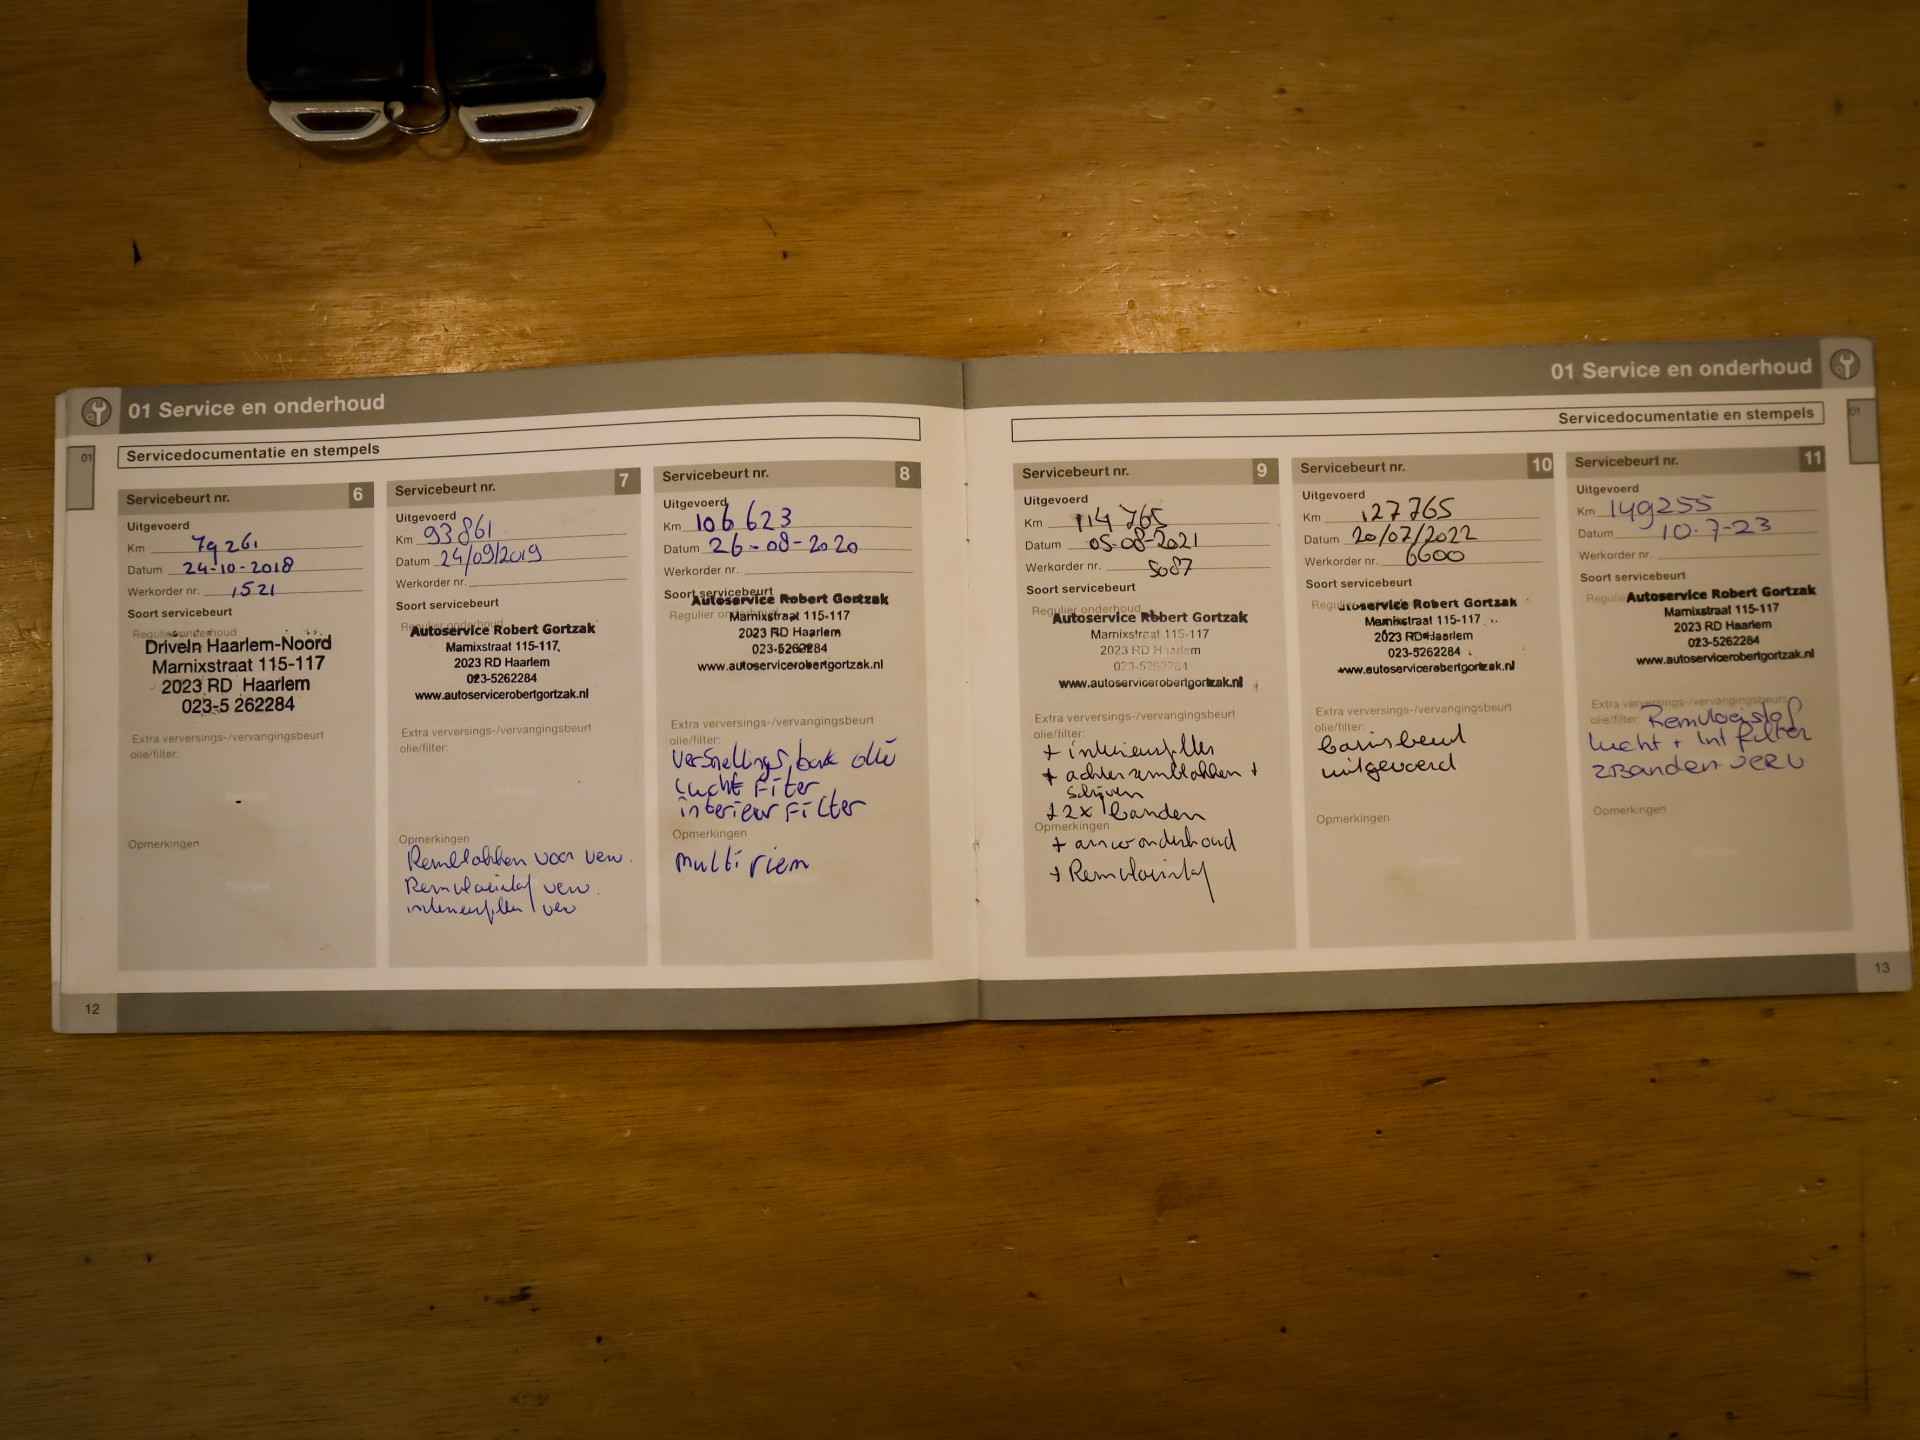 01 Service en onderhoud
01
Servicedocumentatie en stempels
Servicebeurt nr. 6
Uitgevoerd
Km 79261
Datum 24-10-2018
Werkorder nr. 1521
Soort servicebeurt
Regulier onderhoud
DriveIn Haarlem-Noord
Marnixstraat 115-117
2023 RD Haarlem
023-5 262284
Extra verversings-/vervangingsbeurt
olie/filter:
Opmerkingen
Servicebeurt nr. 7
Uitgevoerd
Km 93861
Datum 24/09/2019
Werkorder nr.
Soort servicebeurt
Regulier onderhoud
Autoservice Robert Gortzak
Marnixstraat 115-117,
2023 RD Haarlem
023-5262284
www.autoservicerobertgortzak.nl
Extra verversings-/vervangingsbeurt
olie/filter:
Opmerkingen
Remblokken voor verv.
Remvloeistof verv.
interieurfilter verv
Servicebeurt nr. 8
Uitgevoerd
Km 106623
Datum 26-08-2020
Werkorder nr.
Soort servicebeurt
Regulier onderhoud
Autoservice Robert Gortzak
Marnixstraat 115-117
2023 RD Haarlem
023-5262284
www.autoservicerobertgortzak.nl
Extra verversings-/vervangingsbeurt
olie/filter:
versnellings bak olie
lucht Filter
interieur Filter
Opmerkingen
multi riem
12
01 Service en onderhoud
01
Servicedocumentatie en stempels
Servicebeurt nr. 9
Uitgevoerd
Km 114765
Datum 05-08-2021
Werkorder nr. 5087
Soort servicebeurt
Regulier onderhoud
Autoservice Robert Gortzak
Marnixstraat 115-117
2023 RD Haarlem
023-5262284
www.autoservicerobertgortzak.nl
Extra verversings-/vervangingsbeurt
olie/filter:
+ interieurfilter
+ achter remblokken +
schijven
+ 2x banden
Opmerkingen
+ aircoonderhoud
+ Remvloeistof
Servicebeurt nr. 10
Uitgevoerd
Km 127765
Datum 20/07/2022
Werkorder nr. 6600
Soort servicebeurt
Autoservice Robert Gortzak
Marnixstraat 115-117
2023 RD Haarlem
023-5262284
www.autoservicerobertgortzak.nl
Extra verversings-/vervangingsbeurt
olie/filter:
basisbeurt
uitgevoerd
Opmerkingen
Servicebeurt nr. 11
Uitgevoerd
Km 149255
Datum 10-7-23
Werkorder nr.
Soort servicebeurt
Autoservice Robert Gortzak
Marnixstraat 115-117
2023 RD Haarlem
023-5262284
www.autoservicerobertgortzak.nl
Extra verversings-/vervangingsbeurt
olie/filter: Remvloeistof
lucht + int filter
2Banden verv
Opmerkingen
13